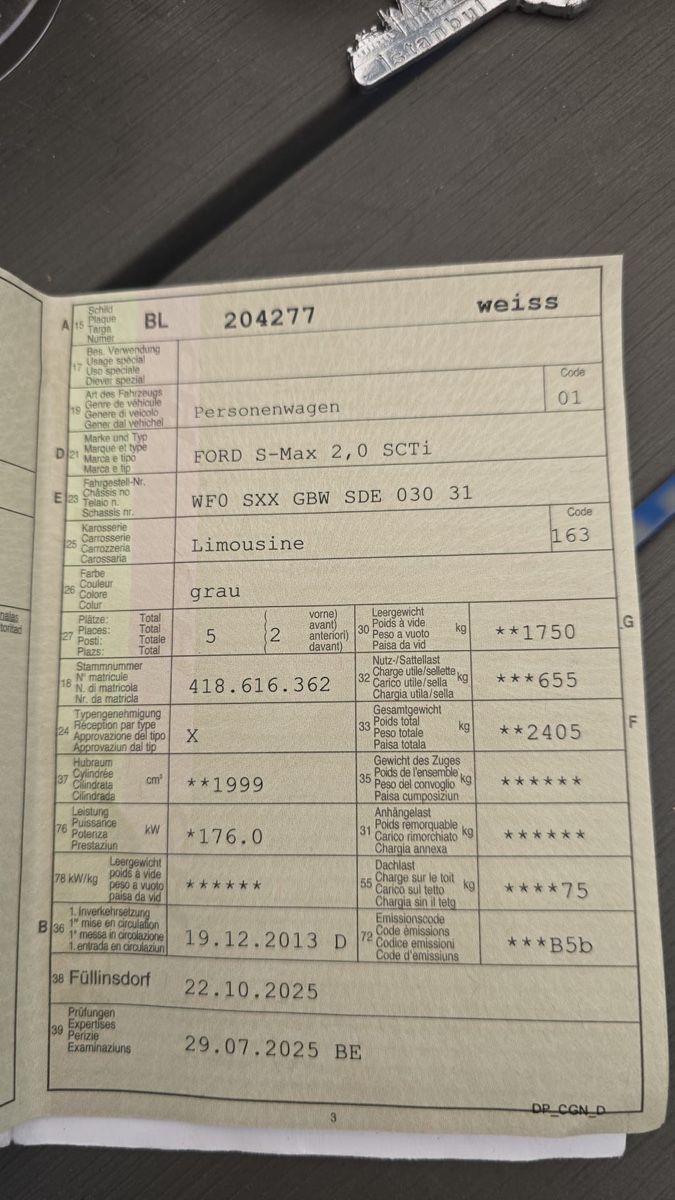 istanbul
A 15 Schild
Plaque
Targa
Numer
BL 204277 weiss
17 Bes. Verwendung
Usage spécial
Uso speciale
Diever spezial
19 Art des Fahrzeugs
Genre de véhicule
Genere di veicolo
Gener dal vehichel
Personenwagen
Code
01
D 21 Marke und Typ
Marque et type
Marca e tipo
Marca e tip
FORD S-Max 2,0 SCTi
E 23 Fahrgestell-Nr.
Châssis no
Telaio n.
Schassis nr.
WF0 SXX GBW SDE 030 31
25 Karosserie
Carrosserie
Carrozzeria
Carossaria
Limousine
Code
163
26 Farbe
Couleur
Colore
Colur
grau
27 Plätze: Total
Places: Total
Posti: Totale
Plazs: Total
5 ( 2 vorne)
avant)
anteriori)
davant)
30 Leergewicht
Poids à vide
Peso a vuoto
Paisa da vid
kg
**1750
G
18 Stammnummer
N° matricule
N. di matricola
Nr. da matricla
418.616.362
32 Nutz-/Sattellast
Charge utile/sellette
Carico utile/sella
Chargia utila/sella
kg
***655
24 Typengenehmigung
Réception par type
Approvazione del tipo
Approvaziun dal tip
X
33 Gesamtgewicht
Poids total
Peso totale
Paisa totala
kg
**2405
F
37 Hubraum
Cylindrée
Cilindrata
Cilindrada
cm³
**1999
35 Gewicht des Zuges
Poids de l'ensemble
Peso del convoglio
Paisa cumposiziun
kg
******
76 Leistung
Puissance
Potenza
Prestaziun
kW
*176.0
31 Anhängelast
Poids remorquable
Carico rimorchiato
Chargia annexa
kg
******
78 kW/kg Leergewicht
poids à vide
peso a vuoto
paisa da vid
******
55 Dachlast
Charge sur le toit
Carico sul tetto
Chargia sin il tetg
kg
****75
B 36 1. Inverkehrsetzung
1re mise en circulation
1a messa in circolazione
1. entrada en circulaziun
19.12.2013 D
72 Emissionscode
Code émissions
Codice emissioni
Code d'emissiuns
***B5b
38 Füllinsdorf
22.10.2025
39 Prüfungen
Expertises
Perizie
Examinaziuns
29.07.2025 BE
3
DP_CGN_D